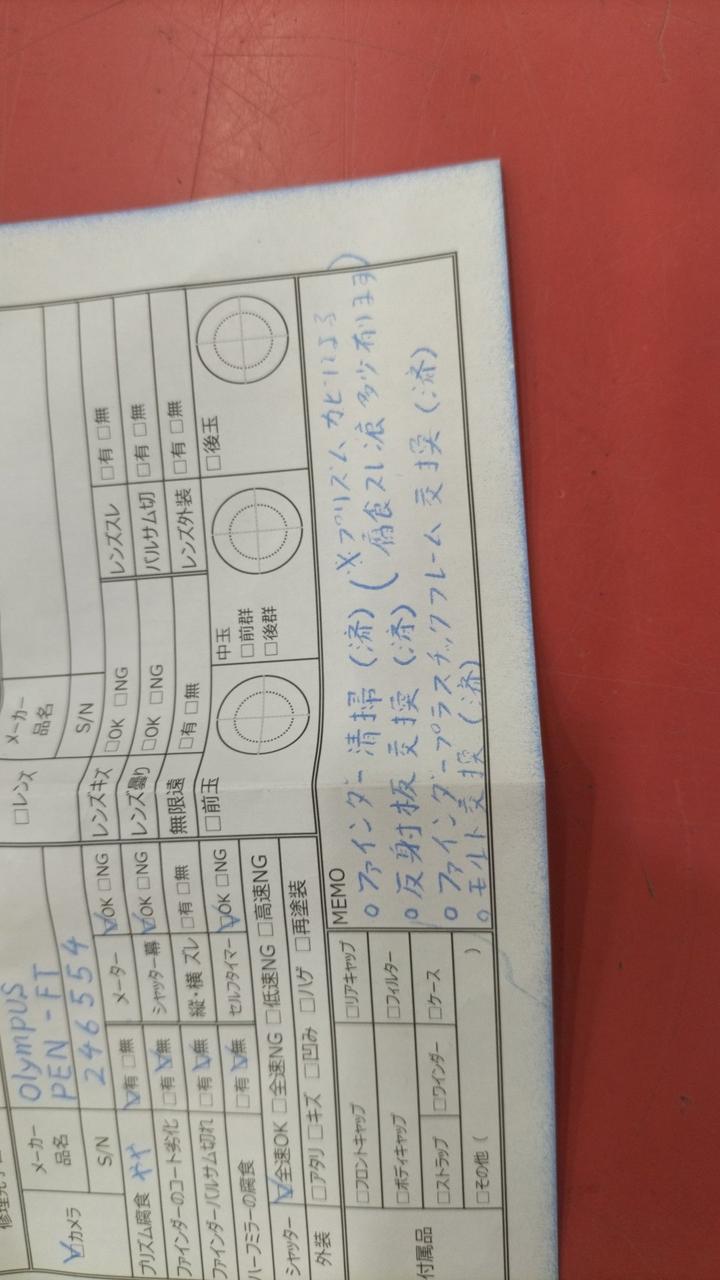 ☑カメラ
メーカー OLYMPUS
品名 PEN-FT
S/N 246554
プリズム腐食 やや ☑有 □無
ファインダーのコート劣化 □有 ☑無
ファインダーバルサム切れ □有 ☑無
ハーフミラーの腐食 □有 ☑無
メーター ☑OK □NG
シャッター幕 ☑OK □NG
縦・横 ズレ □有 □無
セルフタイマー ☑OK □NG
シャッター ☑全速OK □全速NG □低速NG □高速NG
外装 □アタリ □キズ □凹み □ハゲ □再塗装
□レンズ
メーカー
品名
S/N
レンズキズ □OK □NG
レンズ曇り □OK □NG
無限遠 □有 □無
レンズスレ □有 □無
バルサム切 □有 □無
レンズ外装 □有 □無
□前玉
中玉
□前群
□後群
□後玉
付属品
□フロントキャップ □リアキャップ
□ボディキャップ □フィルター
□ストラップ □ワインダー □ケース
□その他( )
MEMO
○ファインダー清掃(済)(※プリズムカビによる
腐食スレ痕多少有ります)
○反射板交換(済)
○ファインダープラスチックフレーム交換(済)
○モルト交換(済)